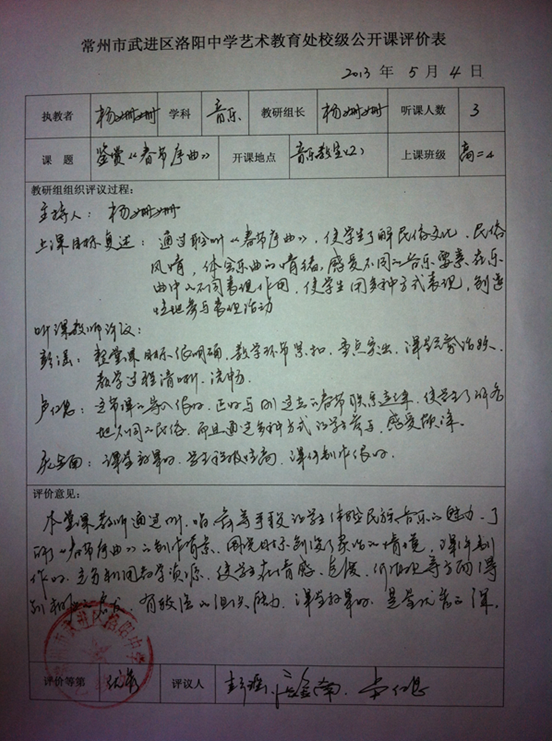 常州市武进区洛阳中学艺术教育处校级公开课评价表
2013 年 5 月 4 日
执教者 杨姗姗 学科 音乐 教研组长 杨姗姗 听课人数 3
课 题 鉴赏《春节序曲》 开课地点 音乐教室(2) 上课班级 高二4
教研组组织评议过程:
主持人: 杨姗姗
上课目标复述: 通过聆听《春节序曲》, 使学生了解民俗文化、民俗
风情, 体会乐曲的情绪, 感受不同的音乐要素在乐
曲中的不同表现作用, 使学生用多种方式表现, 创造
性地参与表现活动
听课教师评议:
彭瑶: 整堂课目标很明确, 教学环节紧扣, 重点突出, 课堂气氛活跃,
教学过程清晰、流畅.
这节课的导入很好, 正好与刚过去的春节联系起来, 使学生了解各
地不同的民俗, 而且通过多种方式让学生参与, 感受旋律.
课堂效果好, 学生积极性高, 课件制作很好.
评价意见:
本堂课教师通过听、唱 等手段让学生体验民族音乐的魅力, 了
解《春节序曲》的创作背景, 围绕目标创设了 的情境, 课件制
作好, 充分利用教学资源, 使学生在情感、态度、价值观等方面得
到 , 有较强的组织能力, 课堂效果好, 是堂优秀的课.
评价等第 优等 评议人 彭瑶